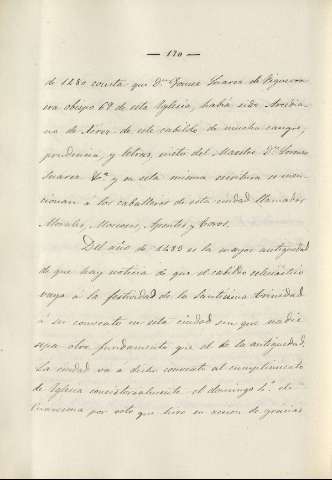 — 170 —
de 1280 consta que Dn Gomez Suarez de Figueroa
era obispo 6º de esta Iglesia, había sido Arcedia-
no de Xerez de este cabildo de mucha sangre,
prudencia, y letras, nieto del Maestre Dn Lorenzo
Suarez &a y en esta misma escritura se men-
cionan á los caballeros de esta ciudad llamados
Morales, Mexores, Apontes y Toros.
Del año de 1482 es la mayor antigüedad
de que hay noticia de que el cabildo eclesiástico
vaya á la festividad de la Santísima Trinidad
á su convento en esta ciudad sin que nadie
sepa otro fundamento que el de la antigüedad.
La ciudad va á dicho convento al cumplimiento
de Iglesia concistorialmente el domingo 4º de
Cuaresma por voto que hizo en accion de gracias